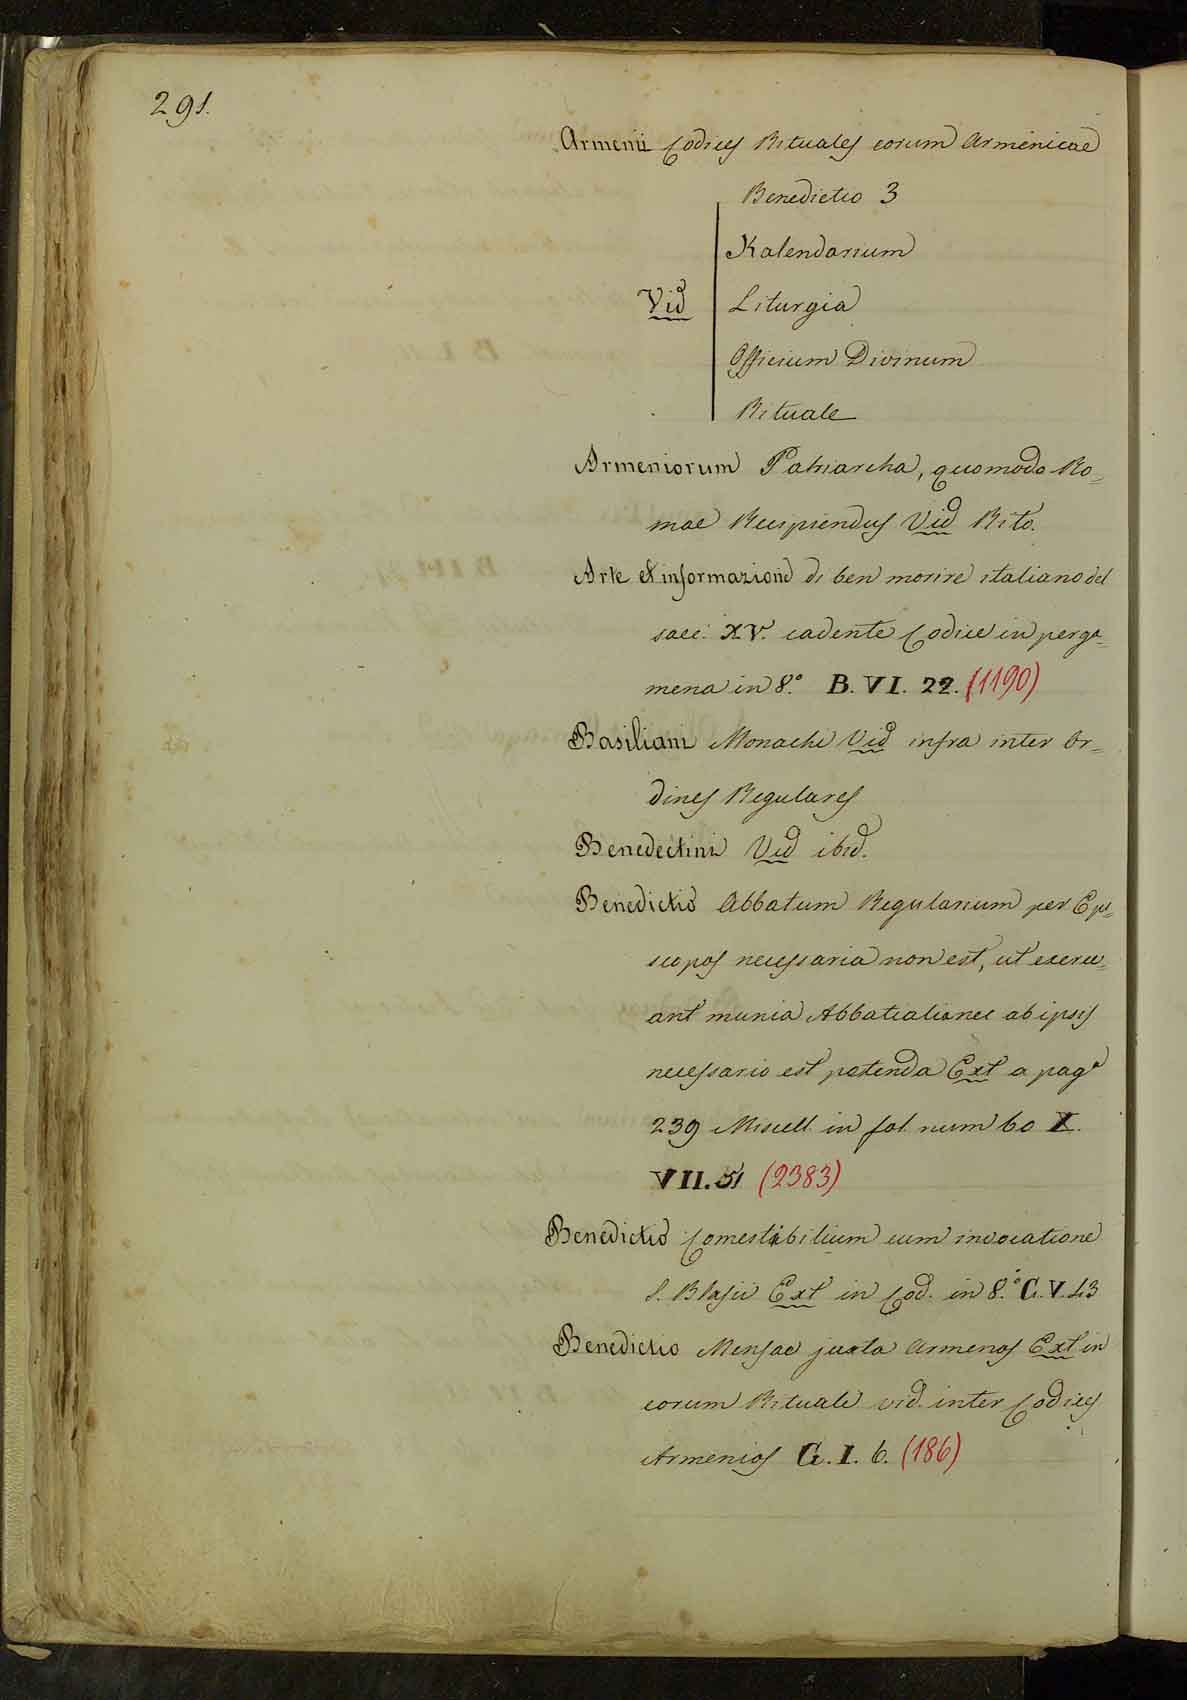 291.
Armenii Codices Rituales eorum Armenicae
Benedictio 3
Kalendarium
Vid Liturgia
Officium Divinum
Rituale
Armeniorum Patriarcha, quomodo Ro=
mae Recipiendus Vid Rito.
Arte et informazione di ben morire italiano del
saec. XV. cadente Codice in perga=
mena in 8.° B. VI. 22. (1190)
Basiliani Monachi Vid infra inter Or=
dines Regulares
Benedectini Vid ibid.
Benedictio Abbatum Regularium per Epi=
scopos necessaria non est, ut exerce=
ant munia Abbatialia nec ab ipsis
necessario est petenda Ext a pag.ª
239 Miscell. in fol. num 60 X.
VII. 51 (2383)
Benedictio Comestibilium cum invocatione
S. Blasii Ext in Cod. in 8.° C. V. 43
Benedictio Mensae juxta Armenos Ext in
eorum Rituale vid. inter Codices
Armenios G. I. 6. (186)